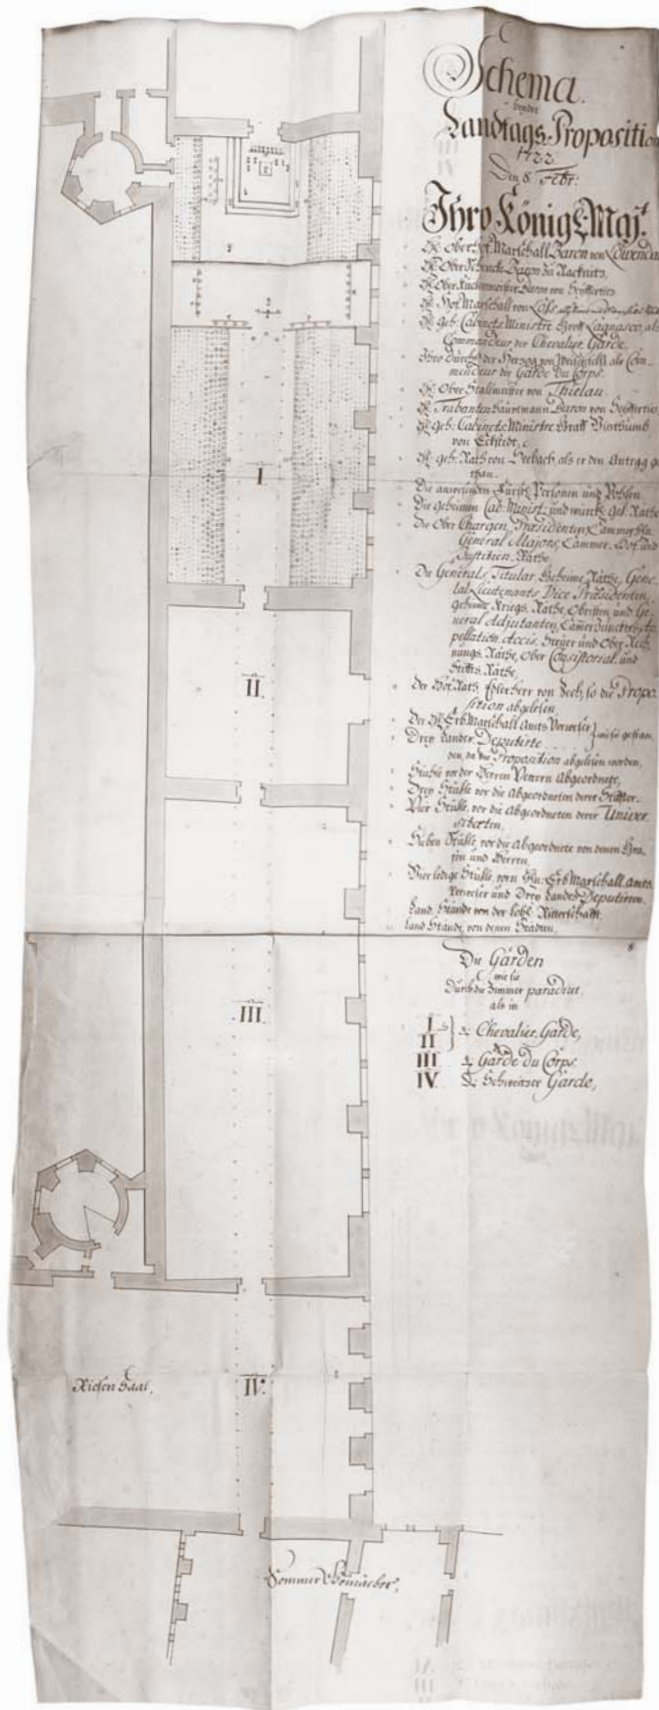 Schema.
Landtags-Proposition
1733
Den 8. Febr:
Ihro Königl: Maj:
Hr. Ober Hof Marschall Baron von Löwendal
Hr. Ober Schenck Baron zu Racknitz.
Hr. Ober Küchenmeister Baron von Seyffertitz
Hr. Hof Marschall von Löss
Hr. Geh. Cabinets Ministre Graff Lagnasco, als
Commandeur der Chevalier Garde.
Ihro Durchl. der Herzog von als Com-
mendeur der Garde du Corps.
Hr. Ober Stallmeister von Thielau.
Hr. Trabanten Hauptmann Baron von Seyffertitz
Hr. Geh. Cabinets Ministre Graff Vitzthumb
von Eckstedt.
Hr. Geh. Rath von Seebach, als er den Antrag ge
than.
Die anwesenden Fürstl. Personen und Pohlen
Die Geheimen Cab. Minist. und würckl. Geh. Räthe
Die Ober Chargen, Praesidenten, Cammer Hn.
General Majors, Cammer, Hof und
Justitien Räthe
Die Generals, Titular Geheime Räthe, Gene-
ral Lieutenants, Vice Praesidenten,
geheime Kriegs Räthe, Obristen und Ge-
neral Adjutanten, Cammer Junckers, Ap-
pellation, Accis, Steuer und Ober Rech-
nungs Räthe, Ober Consistorial und
Stiffts Räthe
Der Hof Rath, Edler Herr von Zech, so die Propo-
sition abgelesen
Der Hr. Erb Marschall Amts Verweser
Drey Landes Deputirte
wie sie gestan
den, da die Proposition abgelesen worden,
Stühle vor der Herren Vettern Abgeordnete,
Drey Stühle vor die Abgeordneten derer Stiffter.
Vier Stühle, vor die Abgeordneten derer Univer
sitæten.
Sieben Stühle, vor die Abgeordnete von denen Gra-
fen und Herren.
Vier ledige Stühle, vorn Hn. Erb Marschall Amts
Verweser und Drey Landes Deputirten.
Land Stände von der löbl. Ritterschafft.
Land Stände, von denen Städten.
Die Garden
wie sie
Durch die Zimmer paradiret,
als in
I
II } die Chevalier Garde,
III die Garde du Corps
IV. die Schweitzer Garde,
I
II
III
Riesen Saal,
IV.
Sommer Gemächer,